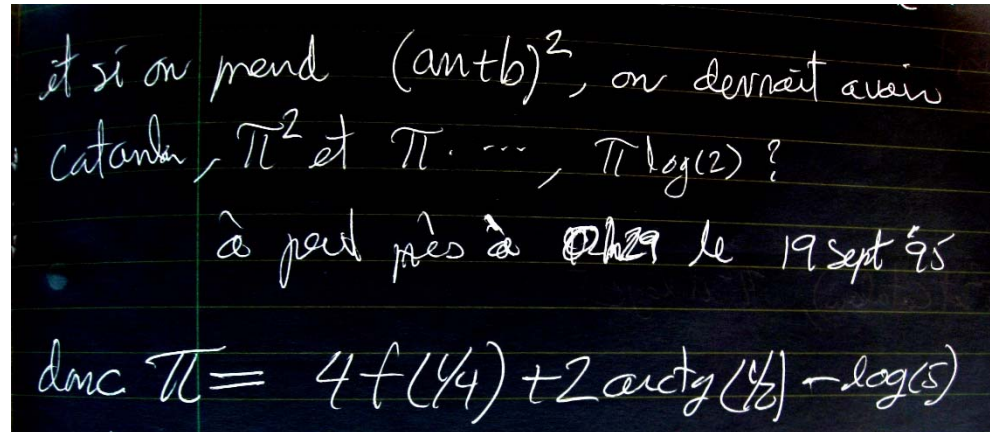 et si on prend (an+b)², on devrait avoir
catalan, π² et π. ..., π log(2) ?
à peu près à 0h29 le 19 sept 95
donc π = 4f(1/4) + 2 arctg(1/2) - log(5)